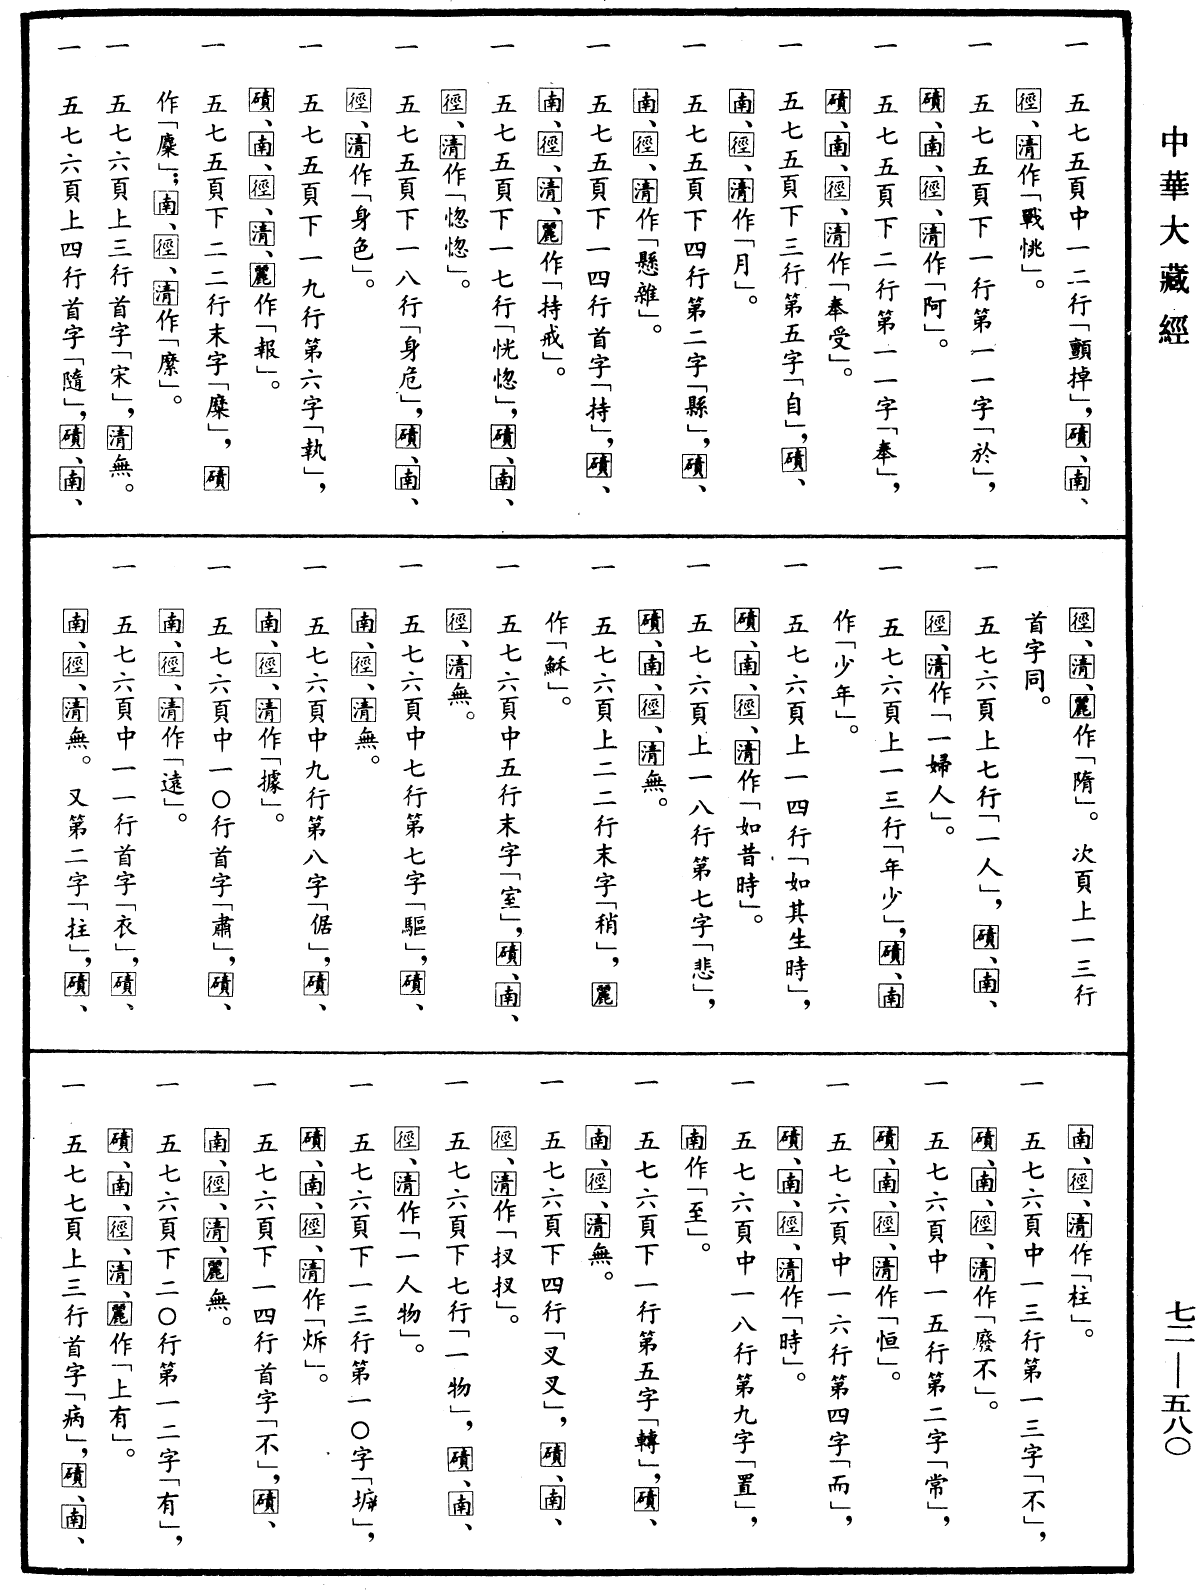 中華大藏經
七二—五八〇
一　五七五頁中一二行「顫掉」，磧、南、
徑、清作「戰恌」。
一　五七五頁下一行第一一字「於」，
磧、南、徑、清作「阿」。
一　五七五頁下二行第一一字「奉」，
磧、南、徑、清作「奉受」。
一　五七五頁下三行第五字「自」，磧、
南、徑、清作「月」。
一　五七五頁下四行第二字「縣」，磧、
南、徑、清作「懸雜」。
一　五七五頁下一四行首字「持」，磧、
南、徑、清、麗作「持戒」。
一　五七五頁下一七行「恍惚」，磧、南、
徑、清作「惚惚」。
一　五七五頁下一八行「身危」，磧、南、
徑、清作「身色」。
一　五七五頁下一九行第六字「執」，
磧、南、徑、清、麗作「報」。
一　五七五頁下二二行末字「糜」，磧
作「麋」；南、徑、清作「縻」。
一　五七六頁上三行首字「宋」，清無。
一　五七六頁上四行首字「隨」，磧、南、
徑、清、麗作「隋」。次頁上一三行
首字同。
一　五七六頁上七行「一人」，磧、南、
徑、清作「一婦人」。
一　五七六頁上一三行「年少」，磧、南
作「少年」。
一　五七六頁上一四行「如其生時」，
磧、南、徑、清作「如昔時」。
一　五七六頁上一八行第七字「悲」，
磧、南、徑、清無。
一　五七六頁上二二行末字「稍」，麗
作「穌」。
一　五七六頁中五行末字「室」，磧、南、
徑、清無。
一　五七六頁中七行第七字「驅」，磧、
南、徑、清無。
一　五七六頁中九行第八字「倨」，磧、
南、徑、清作「據」。
一　五七六頁中一〇行首字「肅」，磧、
南、徑、清作「遠」。
一　五七六頁中一一行首字「衣」，磧、
南、徑、清無。又第二字「拄」，磧、
南、徑、清作「柱」。
一　五七六頁中一三行第一三字「不」，
磧、南、徑、清作「廢不」。
一　五七六頁中一五行第二字「常」，
磧、南、徑、清作「恒」。
一　五七六頁中一六行第四字「而」，
磧、南、徑、清作「時」。
一　五七六頁中一八行第九字「置」，
南作「至」。
一　五七六頁下一行第五字「轉」，磧、
南、徑、清無。
一　五七六頁下四行「叉叉」，磧、南、
徑、清作「扠扠」。
一　五七六頁下七行「一物」，磧、南、
徑、清作「一人物」。
一　五七六頁下一三行第一〇字「㙤」，
磧、南、徑、清作「炘」。
一　五七六頁下一四行首字「不」，磧、
南、徑、清、麗無。
一　五七六頁下二〇行第一二字「有」，
磧、南、徑、清、麗作「上有」。
一　五七七頁上三行首字「病」，磧、南、